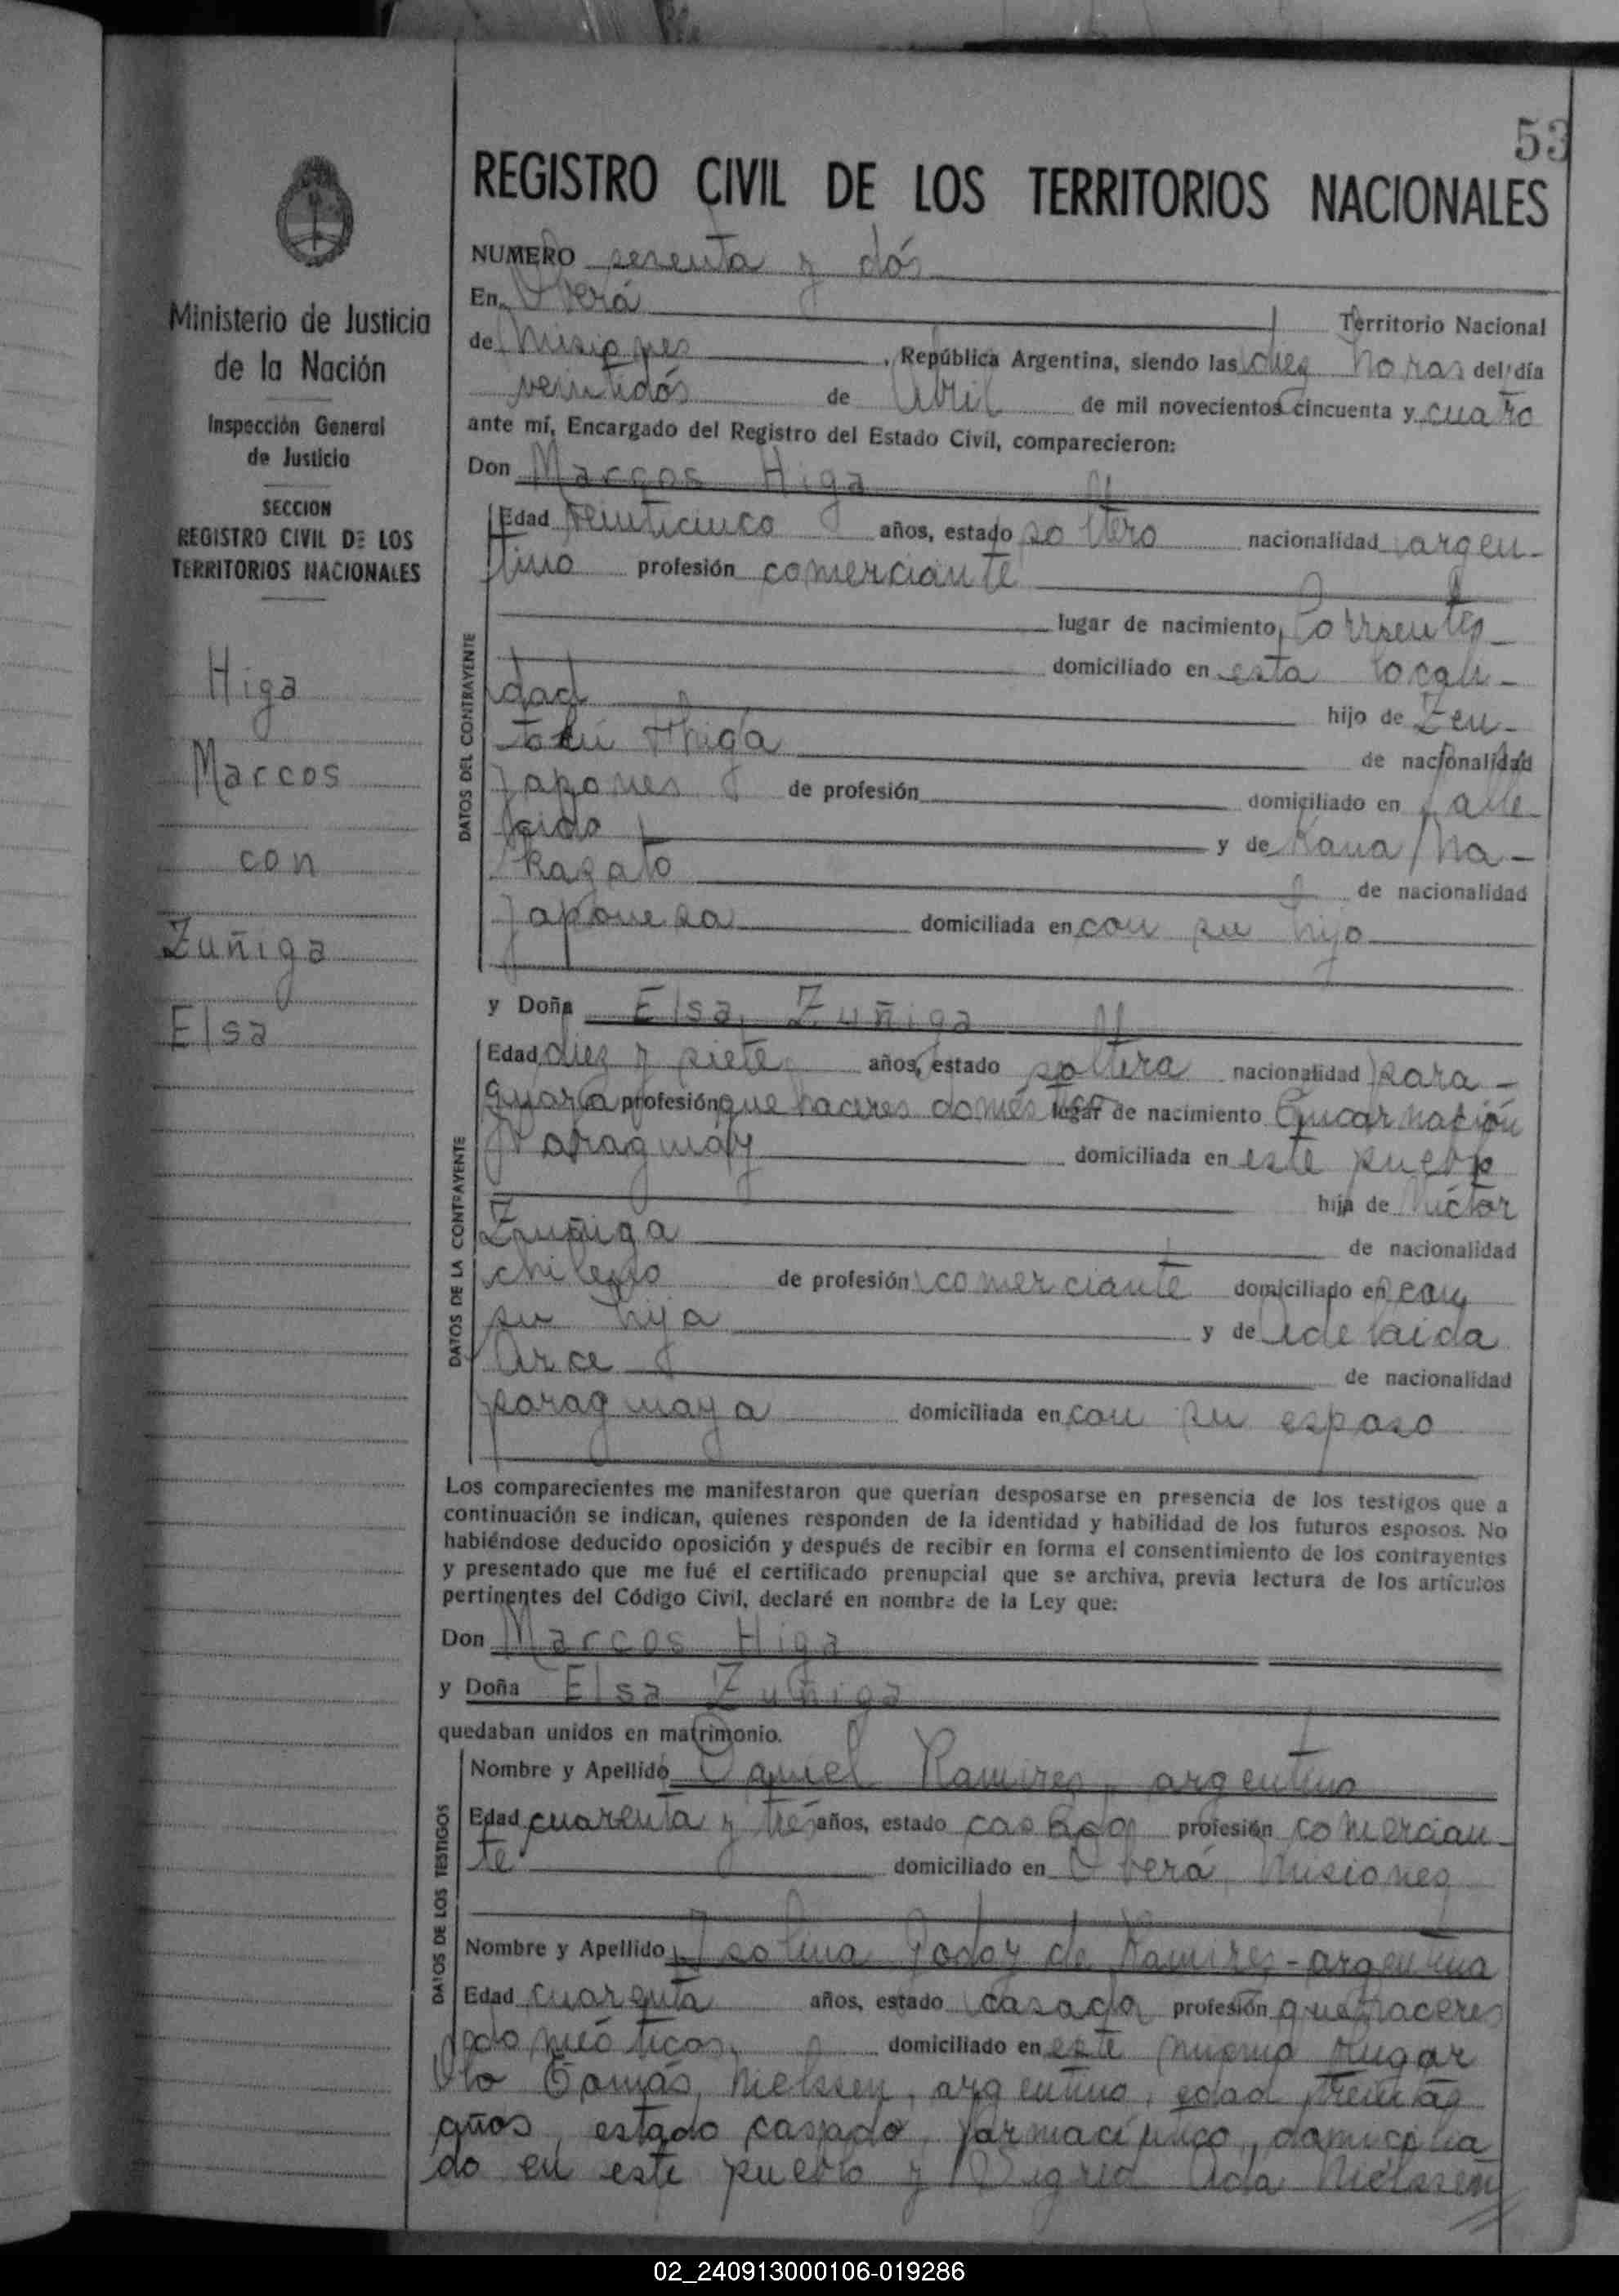 53
REGISTRO CIVIL DE LOS TERRITORIOS NACIONALES
Ministerio de Justicia
de la Nación
Inspección General
de Justicia
SECCION
REGISTRO CIVIL DE LOS
TERRITORIOS NACIONALES
Higa
Marcos
con
Zuñiga
Elsa
NUMERO y dós
En Oberá Territorio Nacional
de Misiones, República Argentina, siendo las diez horas del día
veintidós de Abril de mil novecientos cincuenta y cuatro
ante mí, Encargado del Registro del Estado Civil, comparecieron:
Don Marcos Higa
DATOS DEL CONTRAYENTE
Edad veinticinco años, estado soltero nacionalidad argen-
tino profesión comerciante
lugar de nacimiento Corrientes
domiciliado en esta locali-
dad hijo de Zen-
de nacionalidad
Japones de profesión domiciliado en falle-
cido y de
de nacionalidad
Japonesa domiciliada en con su hijo
y Doña Elsa Zuñiga
DATOS DE LA CONTRAYENTE
Edad diez y siete años, estado soltera nacionalidad para-
guaya profesión que haceres domésticos lugar de nacimiento Encarnación
Paraguay domiciliada en este pueblo
hija de Victor
Zuñiga de nacionalidad
chileno de profesión comerciante domiciliado en con
su hija y de Adelaida
Arce de nacionalidad
paraguaya domiciliada en con su esposo
Los comparecientes me manifestaron que querían desposarse en presencia de los testigos que a
continuación se indican, quienes responden de la identidad y habilidad de los futuros esposos. No
habiéndose deducido oposición y después de recibir en forma el consentimiento de los contrayentes
y presentado que me fué el certificado prenupcial que se archiva, previa lectura de los artículos
pertinentes del Código Civil, declaré en nombre de la Ley que:
Don Marcos Higa
y Doña Elsa Zuñiga
quedaban unidos en matrimonio.
DATOS DE LOS TESTIGOS
Nombre y Apellido Daniel Ramires, argentino
Edad cuarenta y tres años, estado casado profesión comercian-
te domiciliado en Oberá, Misiones
Nombre y Apellido Isolina Godoy de Ramires - argentina
Edad cuarenta años, estado casada profesión quehaceres
domésticos, domiciliado en este mismo lugar
Tomás Nielssen, argentino, edad treinta
años, estado casado, farmacéutico, domicilia
do en este pueblo y Ada Nielssen
02_240913000106-019286